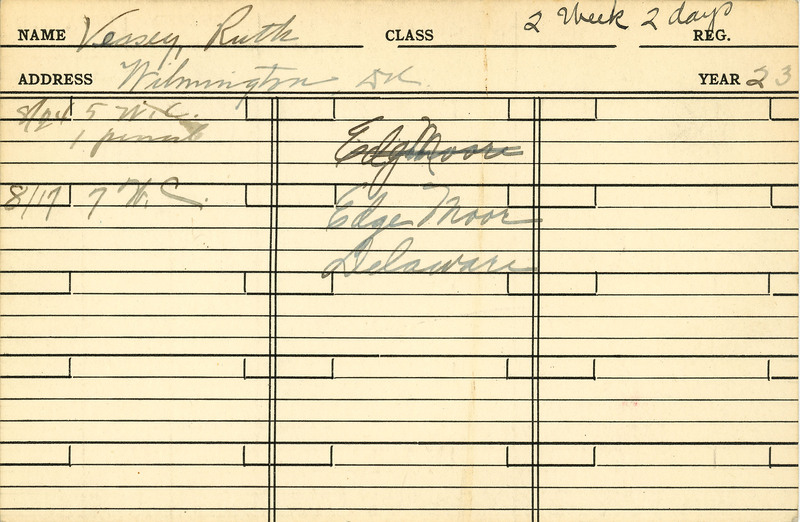 NAME Vessey, Ruth CLASS 2 Week 2 days REG.
ADDRESS Wilmington Del. YEAR 23
8/24 5 W.C.
1 pencil
Edg Moore
8/17 7 W.C.
Edge Moor
Delaware